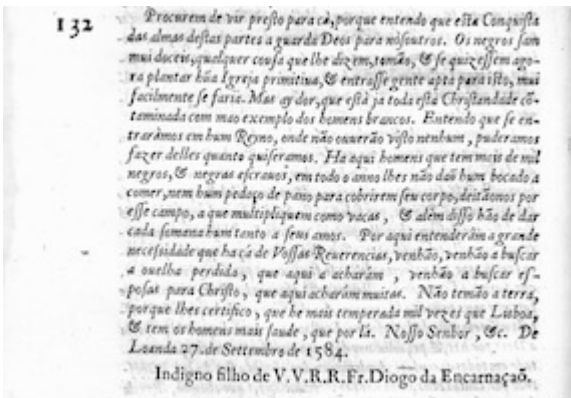 132
Procurem de vir presto para cà, porque entendo que esta Conquista
das almas destas partes a guarda Deos para nòsoutros. Os negros sam
mui doceis, qualquer cousa que lhe dizem, tomão, & se quizessem ago-
ra plantar hũa Igreja primitiva, & entrasse gente apta para isto, mui
facilmente se faria. Mas ay dor, que està ja toda esta Christandade cõ-
taminada com mao exemplo dos homens brancos. Entendo que se en-
traràmos em hum Reyno, onde não ouverão visto nenhum, puderamos
fazer delles quanto quiseramos. Ha aqui homens que tem mais de mil
negros, & negras escravos, em todo o anno lhes não daõ hum bocado a
comer, nem hum pedaço de pano para cobrirem seu corpo, deitãonos por
esse campo, a que multipliquem como vacas, & alèm disso hão de dar
cada somana hum tanto a seus amos. Por aqui entenderàm a grande
necessidade que ha cà de Vossas Reverencias, venhão, venhão a buscar
a ouelha perdida, que aqui a acharàm, venhão a buscar es-
posas para Christo, que aqui acharàm muitas. Não temão a terra,
porque lhes certifico, que he mais temperada mil vezes que Lisboa,
& tem os homens mais saude, que por là. Nosso Senhor, &c. De
Loanda 27. de Settembro de 1584.
Indigno filho de V.V.R.R. Fr. Diogo da Encarnaçaõ.